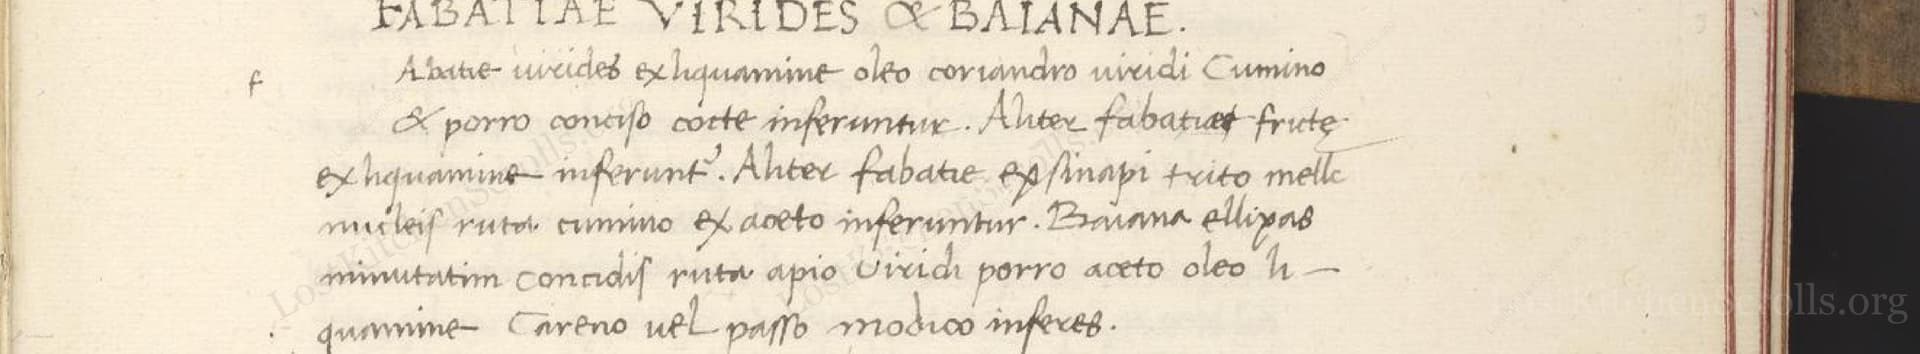 FABATIAE VIRIDES & BAIANAE.
f
Abatie virides ex liquamine oleo coriandro viridi Cumino
& porro conciso cocte inferuntur. Aliter fabatiae frictę
ex liquamine inferunt᾽. Aliter fabatie ex sinapi trito melle
nucleis ruta cumino ex aceto inferuntur. Baiana ellixas
minutatim concidis ruta apio viridi porro aceto oleo li–
quamine Careno vel passo modico inferes.
LostKitchenScrolls.org